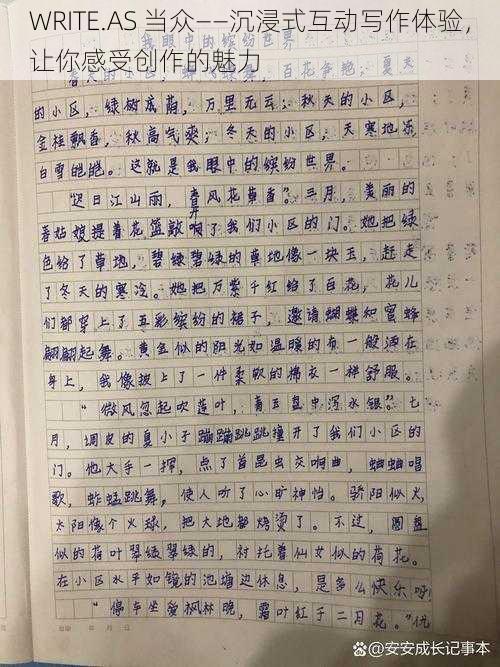 WRITE.AS 当众——沉浸式互动写作体验，
让你感受创作的魅力
我眼中的缤纷世界
春天的小区，蝉飞蝶舞，百花争艳；夏天
的小区，绿树成荫，万里无云；秋天的小区，
金桂飘香，秋高气爽；冬天的小区，天寒地冻
白雪皑皑。这就是我眼中的缤纷世界。
“迟日江山丽，春风花草香”。三月，美丽的
春姑娘提着花篮敲开了我们小区的门。她把绿
色给了草地，碧绿碧绿的草地像一块玉，赶走
了冬天的寒冷。她把万紫千红给了百花，花儿
们都穿上了五彩缤纷的裙子，邀请蝴蝶和蜜蜂
翩翩起舞。黄金似的阳光如温暖的布一般洒在
身上，我像披上了一件柔软的棉衣一样舒服。
“微风忽起吹莲叶，青玉盘中泻水银”。七
月，调皮的夏小子蹦蹦跳跳撞开了我们小区的
门。他大手一挥，点了首昆虫交响曲，蛐蛐唱
歌，蚱蜢跳舞，使人听了心旷神怡。骄阳似火
太阳像个火球，把大地都烧烫了。不过，圆盘
似的荷叶翠绿翠绿的，衬托着仙女似的荷花。
在小区水平如镜的池塘边休息，是多么快乐呀
“停车坐爱枫林晚，霜叶红于二月花。”优
年 月 日
@安安成长记事本